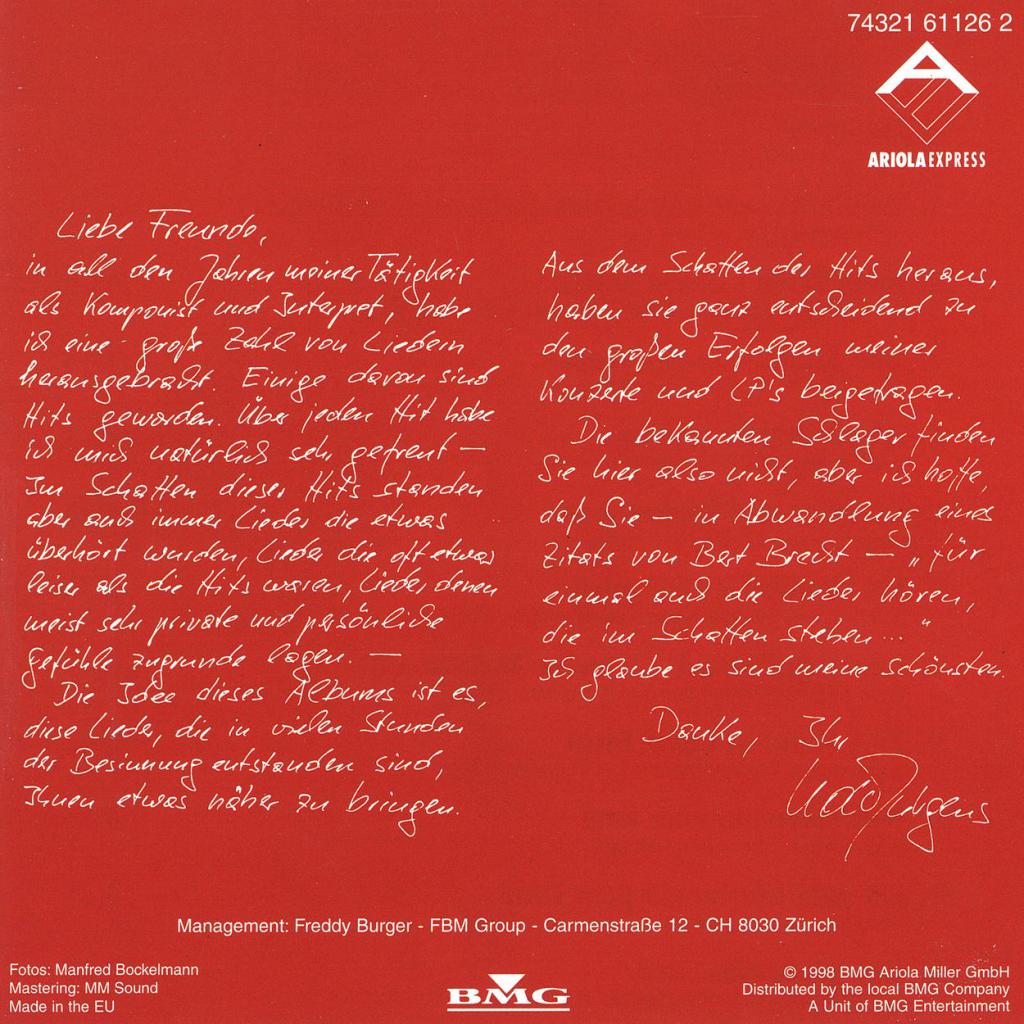 74321 61126 2
ARIOLA EXPRESS
Liebe Freunde,
in all den Jahren meiner Tätigkeit
als Komponist und Interpret, habe
ich eine große Zahl von Liedern
herausgebracht. Einige davon sind
Hits geworden. Über jeden Hit habe
ich mich natürlich sehr gefreut —
Im Schatten dieser Hits standen
aber auch immer Lieder die etwas
überhört wurden, Lieder die oft etwas
leiser als die Hits waren, Lieder denen
meist sehr private und persönliche
Gefühle zugrunde lagen. —
Die Idee dieses Albums ist es,
diese Lieder, die in vielen Stunden
der Besinnung entstanden sind,
Ihnen etwas näher zu bringen.
Aus dem Schatten der Hits heraus,
haben sie ganz entscheidend zu
den großen Erfolgen meiner
Konzerte und LP's beigetragen.
Die bekannten Schlager finden
Sie hier also nicht, aber ich hoffe,
daß Sie — in Abwandlung eines
Zitats von Bert Brecht — „für
einmal auch die Lieder hören,
die im Schatten stehen..."
Ich glaube es sind meine schönsten.
Danke, Ihr
Udo Jürgens
Management: Freddy Burger - FBM Group - Carmenstraße 12 - CH 8030 Zürich
Fotos: Manfred Bockelmann
Mastering: MM Sound
Made in the EU
BMG
© 1998 BMG Ariola Miller GmbH
Distributed by the local BMG Company
A Unit of BMG Entertainment